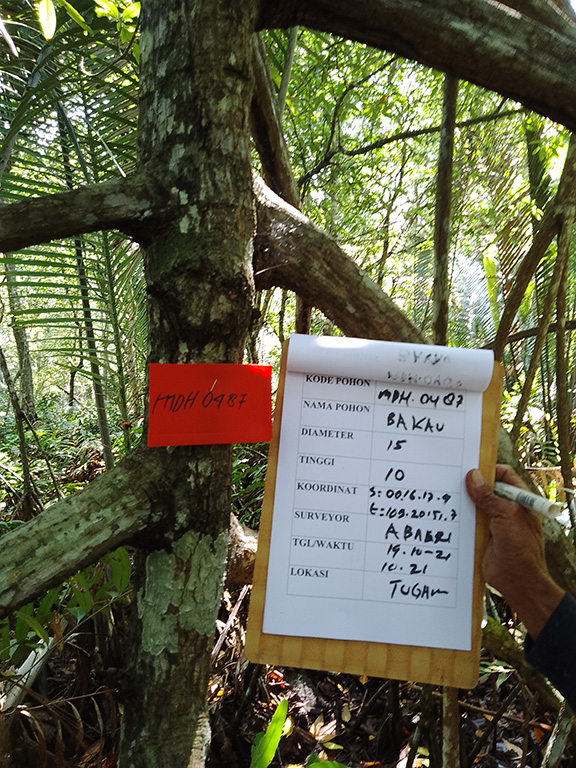 MDH 0487
KODE POHON MDH. 0487
NAMA POHON BAKAU
DIAMETER 15
TINGGI 10
KOORDINAT S: 00.16.17.9
E: 109.20151.7
SURVEYOR ABAKRI
TGL/WAKTU 19-10-21
10.21
LOKASI TUGAM